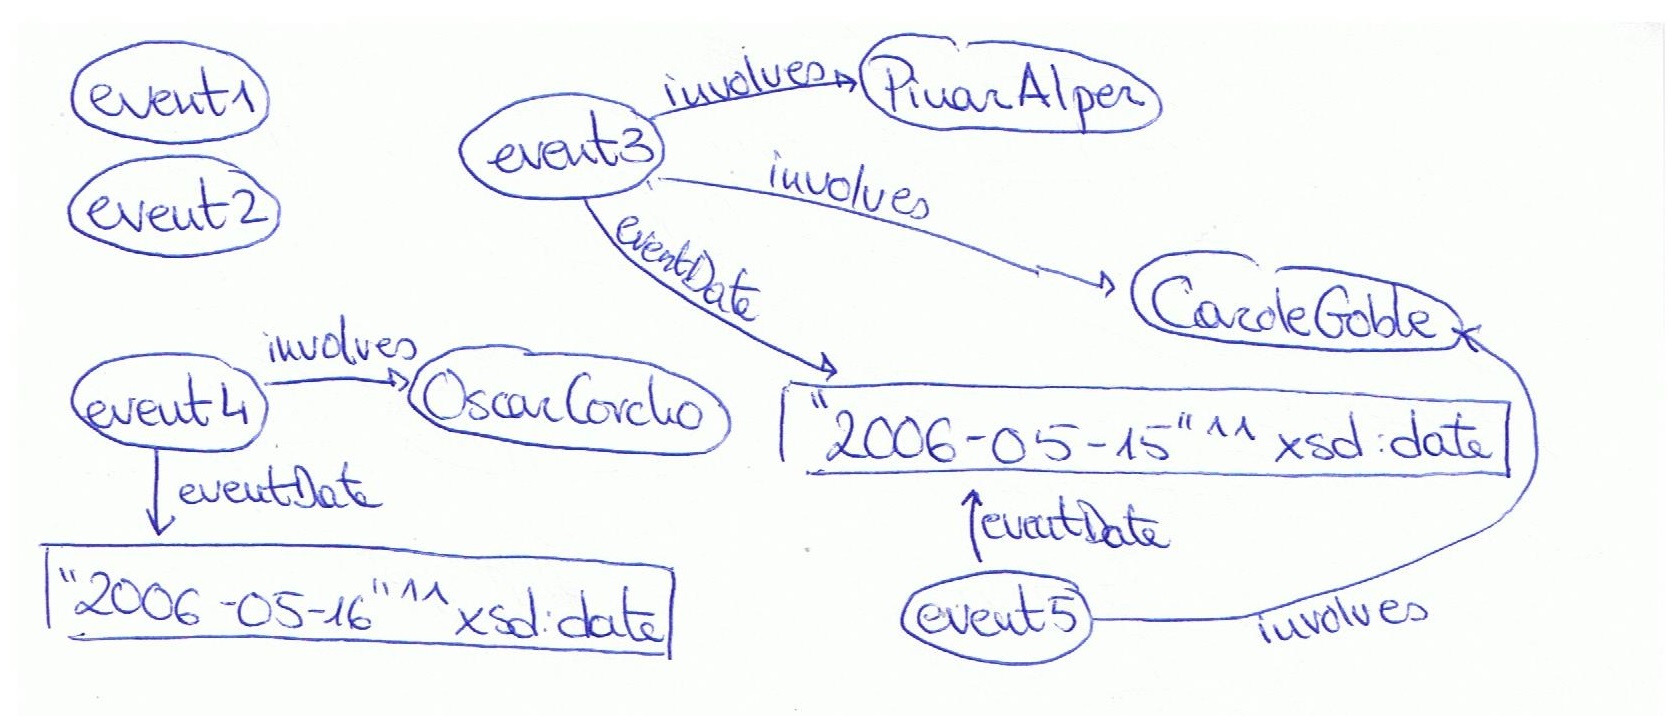 event1
event2
event3
involves
PinarAlper
involves
CaroleGoble
eventDate
"2006-05-15"^^xsd:date
event4
involves
OscarCorcho
eventDate
"2006-05-16"^^xsd:date
eventDate
event5
involves